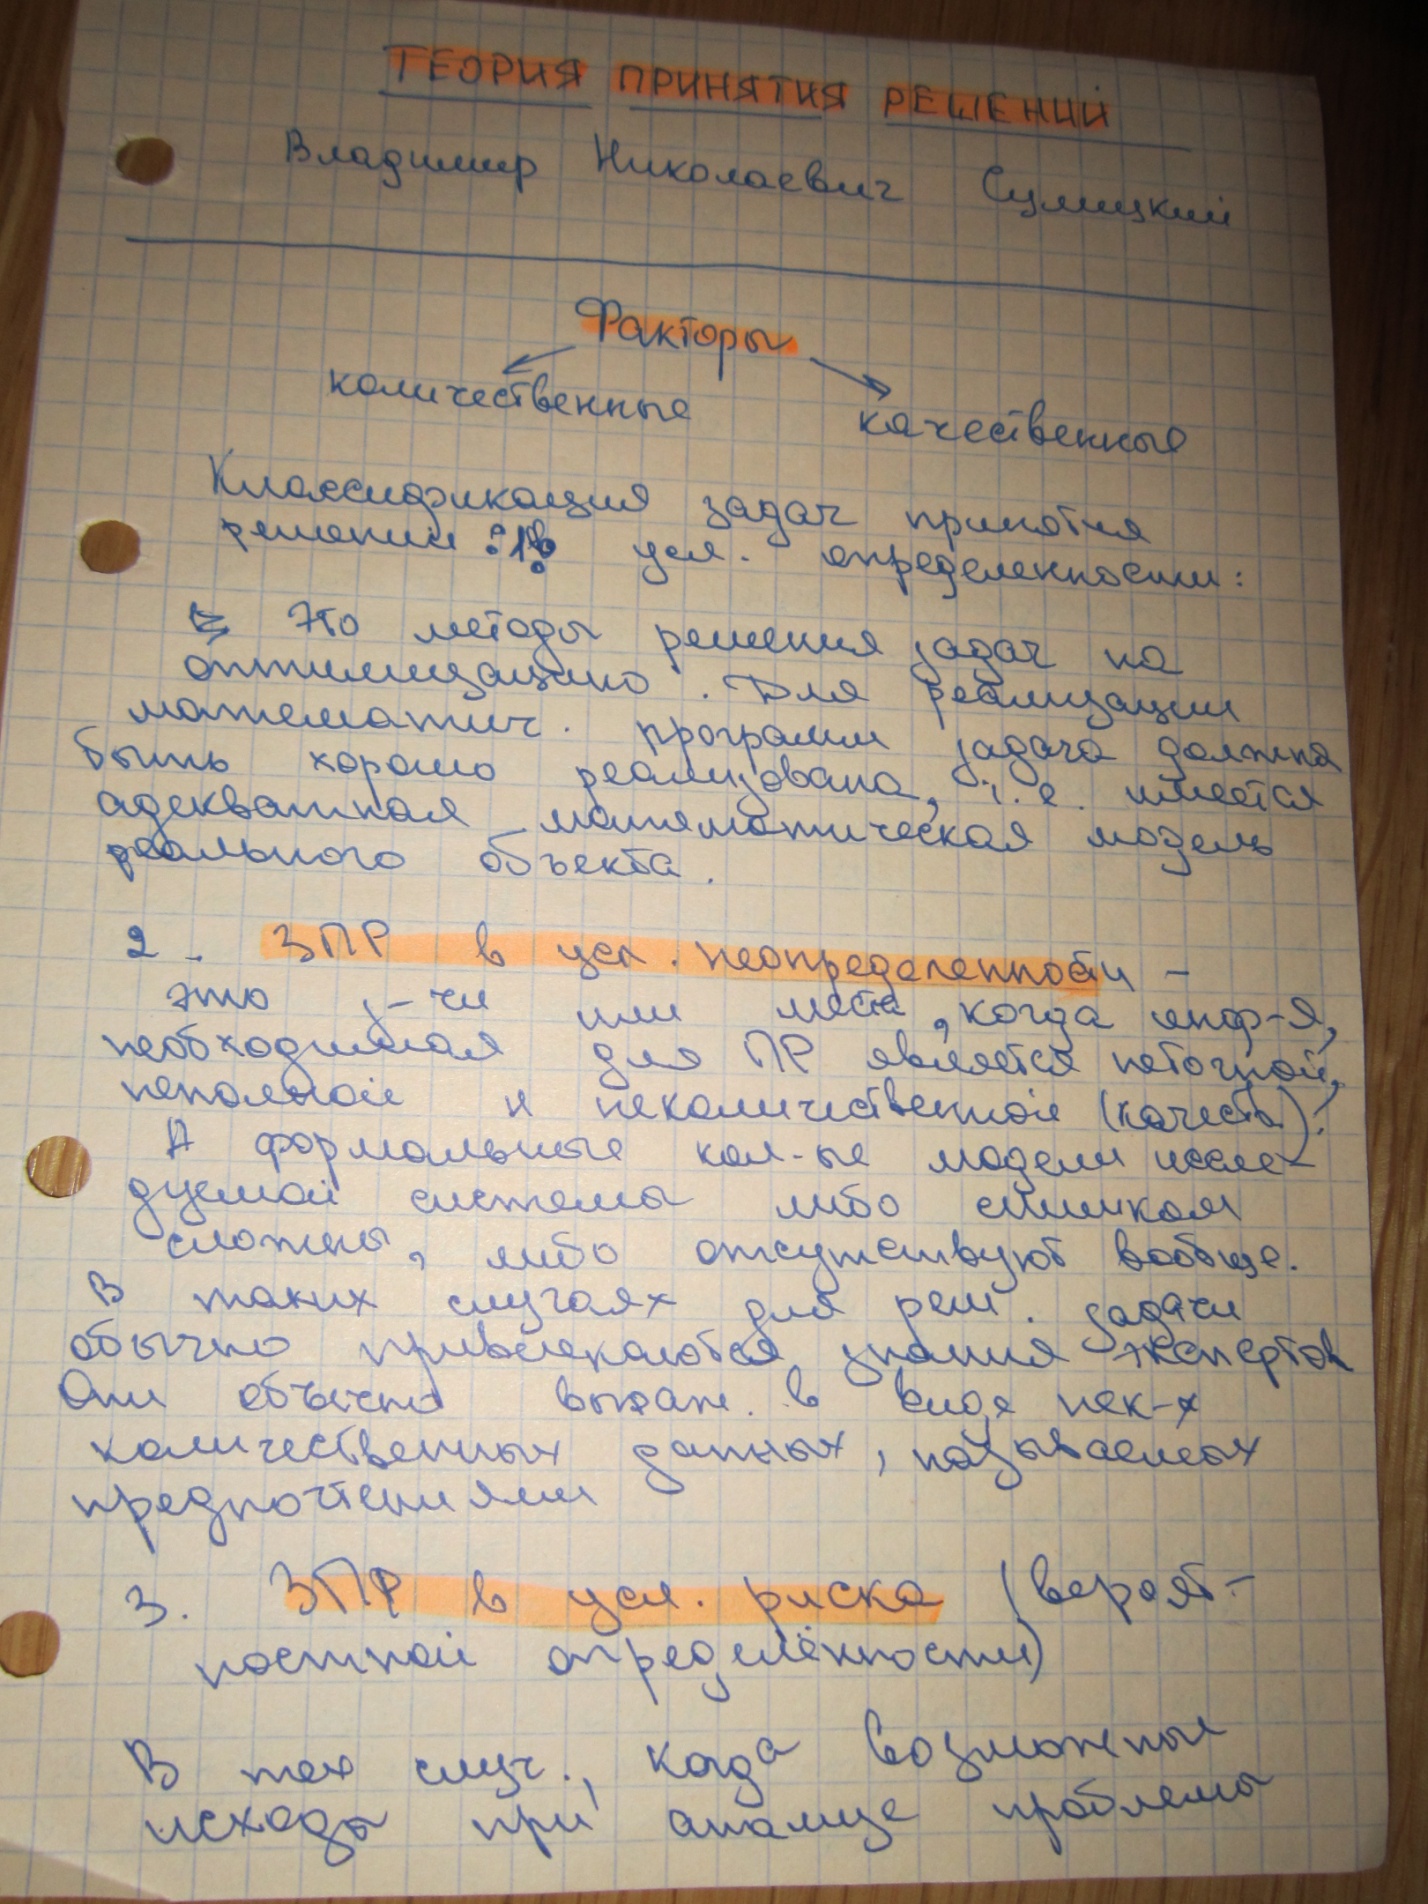 ТЕОРИЯ ПРИНЯТИЯ РЕШЕНИЙ
Владимир Николаевич Сулицкий
Факторы
количественные качественные
Классификация задач принятия
решений: 1. в усл. определенности:
Это методы решения задач на
оптимизацию. Для реализации
математич. программ задача должна
быть хорошо реализована, т.е. имеется
адекватная математическая модель
реального объекта.
2. ЗПР в усл. неопределенности -
это з-чи или места, когда инф-я,
необходимая для ПР является неточной,
неполной и неколичественной (качеств).
А формальные кол-ые модели иссле-
дуемой системы либо слишком
сложны, либо отсутствуют вообще.
В таких случаях для реш. задачи
обычно привлекаются знания экспертов
Они обычно выраж. в виде нек-х
количественных данных, называемых
предпочтениями
3. ЗПР в усл. риска (вероят-
ностной определённости)
В тех случ., когда возможные
исходы при анализе проблемы